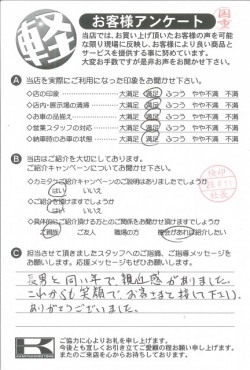 軽
お客様アンケート
当店では、お買い上げ頂いたお客様の声を可能
な限り現場に反映し、お客様により良い商品と
サービスを提供する事に努めています。
大変お手数ですが是非お声をお聞かせ下さい。
A 当店を実際にご利用になった印象をお聞かせ下さい。
◇店の印象 大満足 満足 ふつう やや不満 不満
◇店内・展示場の清掃 大満足 満足 ふつう やや不満 不満
◇お車の品揃え 大満足 満足 ふつう やや不満 不満
◇営業スタッフの対応 大満足 満足 ふつう やや不満 不満
◇納車時のお車の状態 大満足 満足 ふつう やや不満 不満
B 当店はご紹介を大切にしております。
ご紹介キャンペーンについてお聞かせ下さい。
◇カミタケご紹介キャンペーンのご説明はありましたでしょうか
はい いいえ
◇ご紹介を頂けますでしょうか
はい いいえ
ご親戚 ご友人 職場の方 機会があれば紹介したい
C 担当させて頂きましたスタッフへのご指摘、ご指導メッセージを
お願いします。応援メッセージもぜひお願いします。
長男と同い年で親近感がありました。
これからも笑顔で、お客さまと接して下さい。
ありがとうございました。
K
ご協力に心よりお礼を申し上げます。
今後とも宜しくお引き立てご愛顧の程お願い申し上げます。
またのご来店を心からお待ちしております。